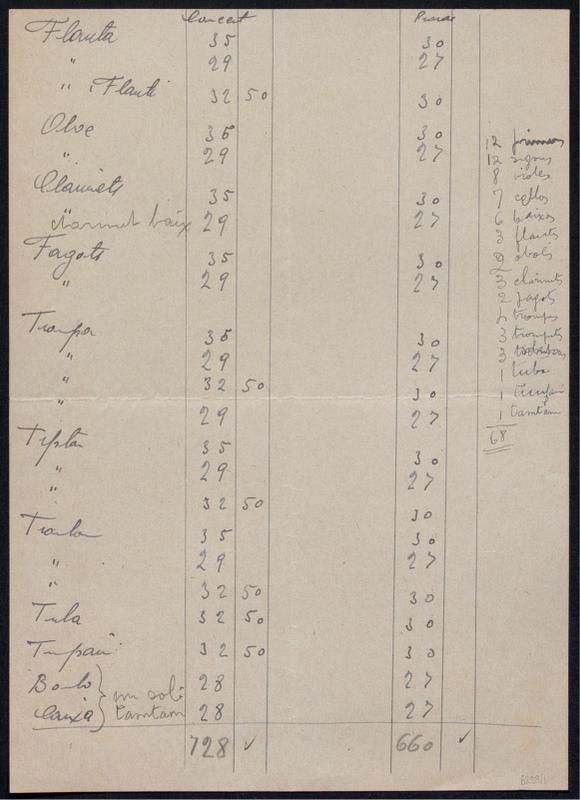 Concert
Flauta 35 30
" 29 27
" Flauti 32 50 30
Oboe 35 30
" 29 27
Clarinets 35 30
clarinet baix 29 27
Fagots 35 30
" 29 27
Trompa 35 30
" 29 27
" 32 50 30
" 29 27
35 30
" 29 27
" 32 50 30
35 30
" 29 27
" 32 50 30
Tuba 32 50 30
32 50 30
Bombo 28 27
Caixa 28 27
un sol
tamtam
728 ✓ 660 ✓
12 primers
12 segons
8 violes
7 cellos
6 baixos
3 flautes
2 obois
3 clarinets
2 fagots
4 trompes
3 trompets
3
1 tuba
1 timpani
1 tamtam
68